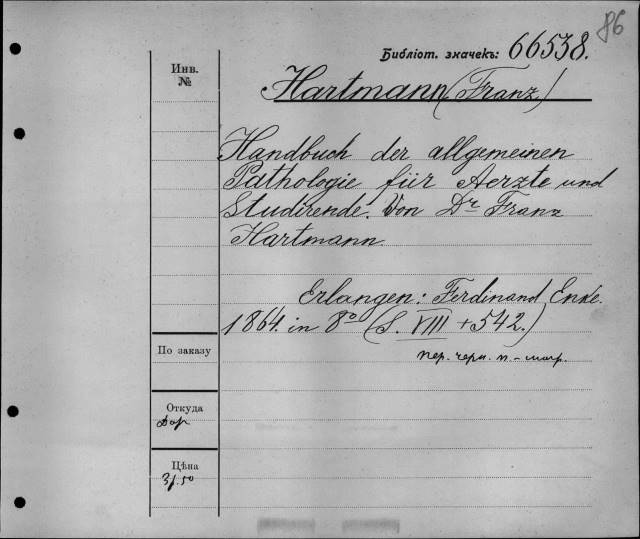 86
Библіот. значекъ: 66538.
Инв.
№
Hartmann (Franz)
Handbuch der allgemeinen
Pathologie für Aerzte und
Studirende. Von Dr Franz
Hartmann.
Erlangen: Ferdinand Enke.
1864. in 8º (S. VIII + 542.)
По заказу
пер. черн. п.-
Откуда
Дар
Цѣна
3р.50